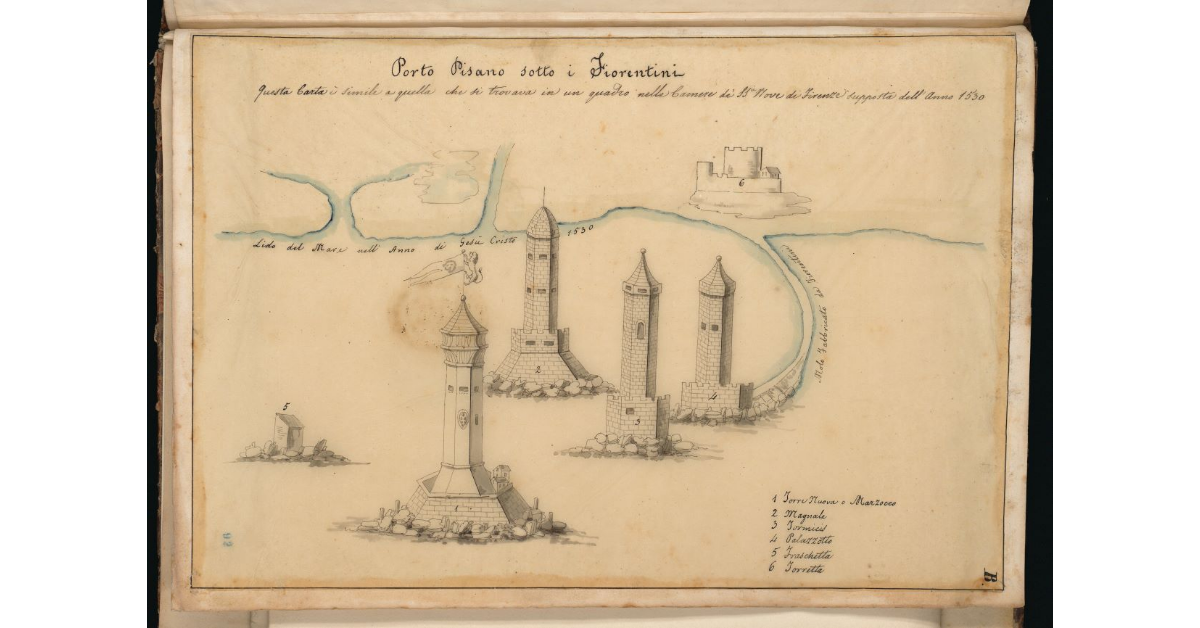 Porto Pisano sotto i Fiorentini
Questa Carta è simile a quella che si trovava in un quadro nelle Camere di Nove di Firenze supposta dell'Anno 1530
6
Lido del Mare nell'Anno di Gesù Cristo 1530
Molo Fabbricato dai Fiorentini
2
5
4
3
1
1 Torre Nuova o Marzocco
2 Magnale
3 Formices
4 Palazzotto
5 Fraschetta
6 Torretta
92
B.